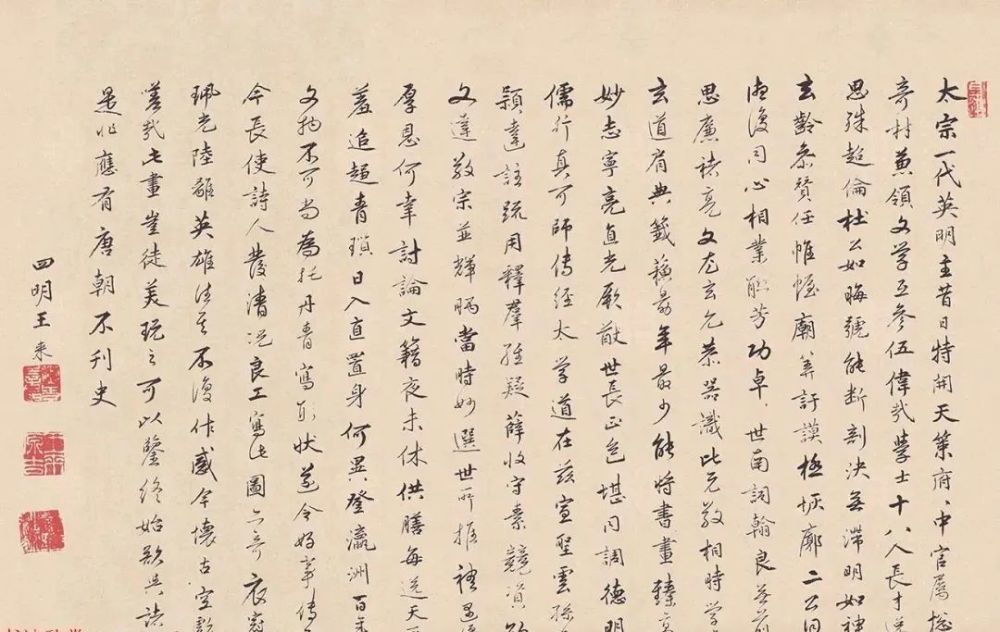 太宗一代英明主昔日特開天策府府中官屬揔
奇材兼領文學互參伍偉哉學士十八人長才
思殊超倫杜公如晦號能斷剖決無滯明如神
玄齡參贊任帷幄廟筭訏謨極恢廓二公同
心復同心相業聯芳功卓世南詞翰良
思廉褚亮文尤玄允恭器識比元敬相時學
玄道有典籤蘇勗年最少能將書畫臻高
妙志寧亮直光厥猷世長正色堪同調德明
儒行真可師傳經太學道在茲宣聖雲孫
穎達註疏用釋羣疑薛收守素競
文達敬宗並輝暎當時妙選世所推禮遇
厚恩何幸討論文籍夜未休供膳每送天
羞追趨青瑣日入直置身何異登瀛洲百年
文物不可當為托丹青寫形狀遂令好事傳
今長使詩人發清況良工寫此圖亦奇衣
珮光陸離英雄往矣不復作感今懷古空
嗟哉此畫豈徒美玩之可以鑒終始欲與諸
是非應有唐朝不刊史
四明王來